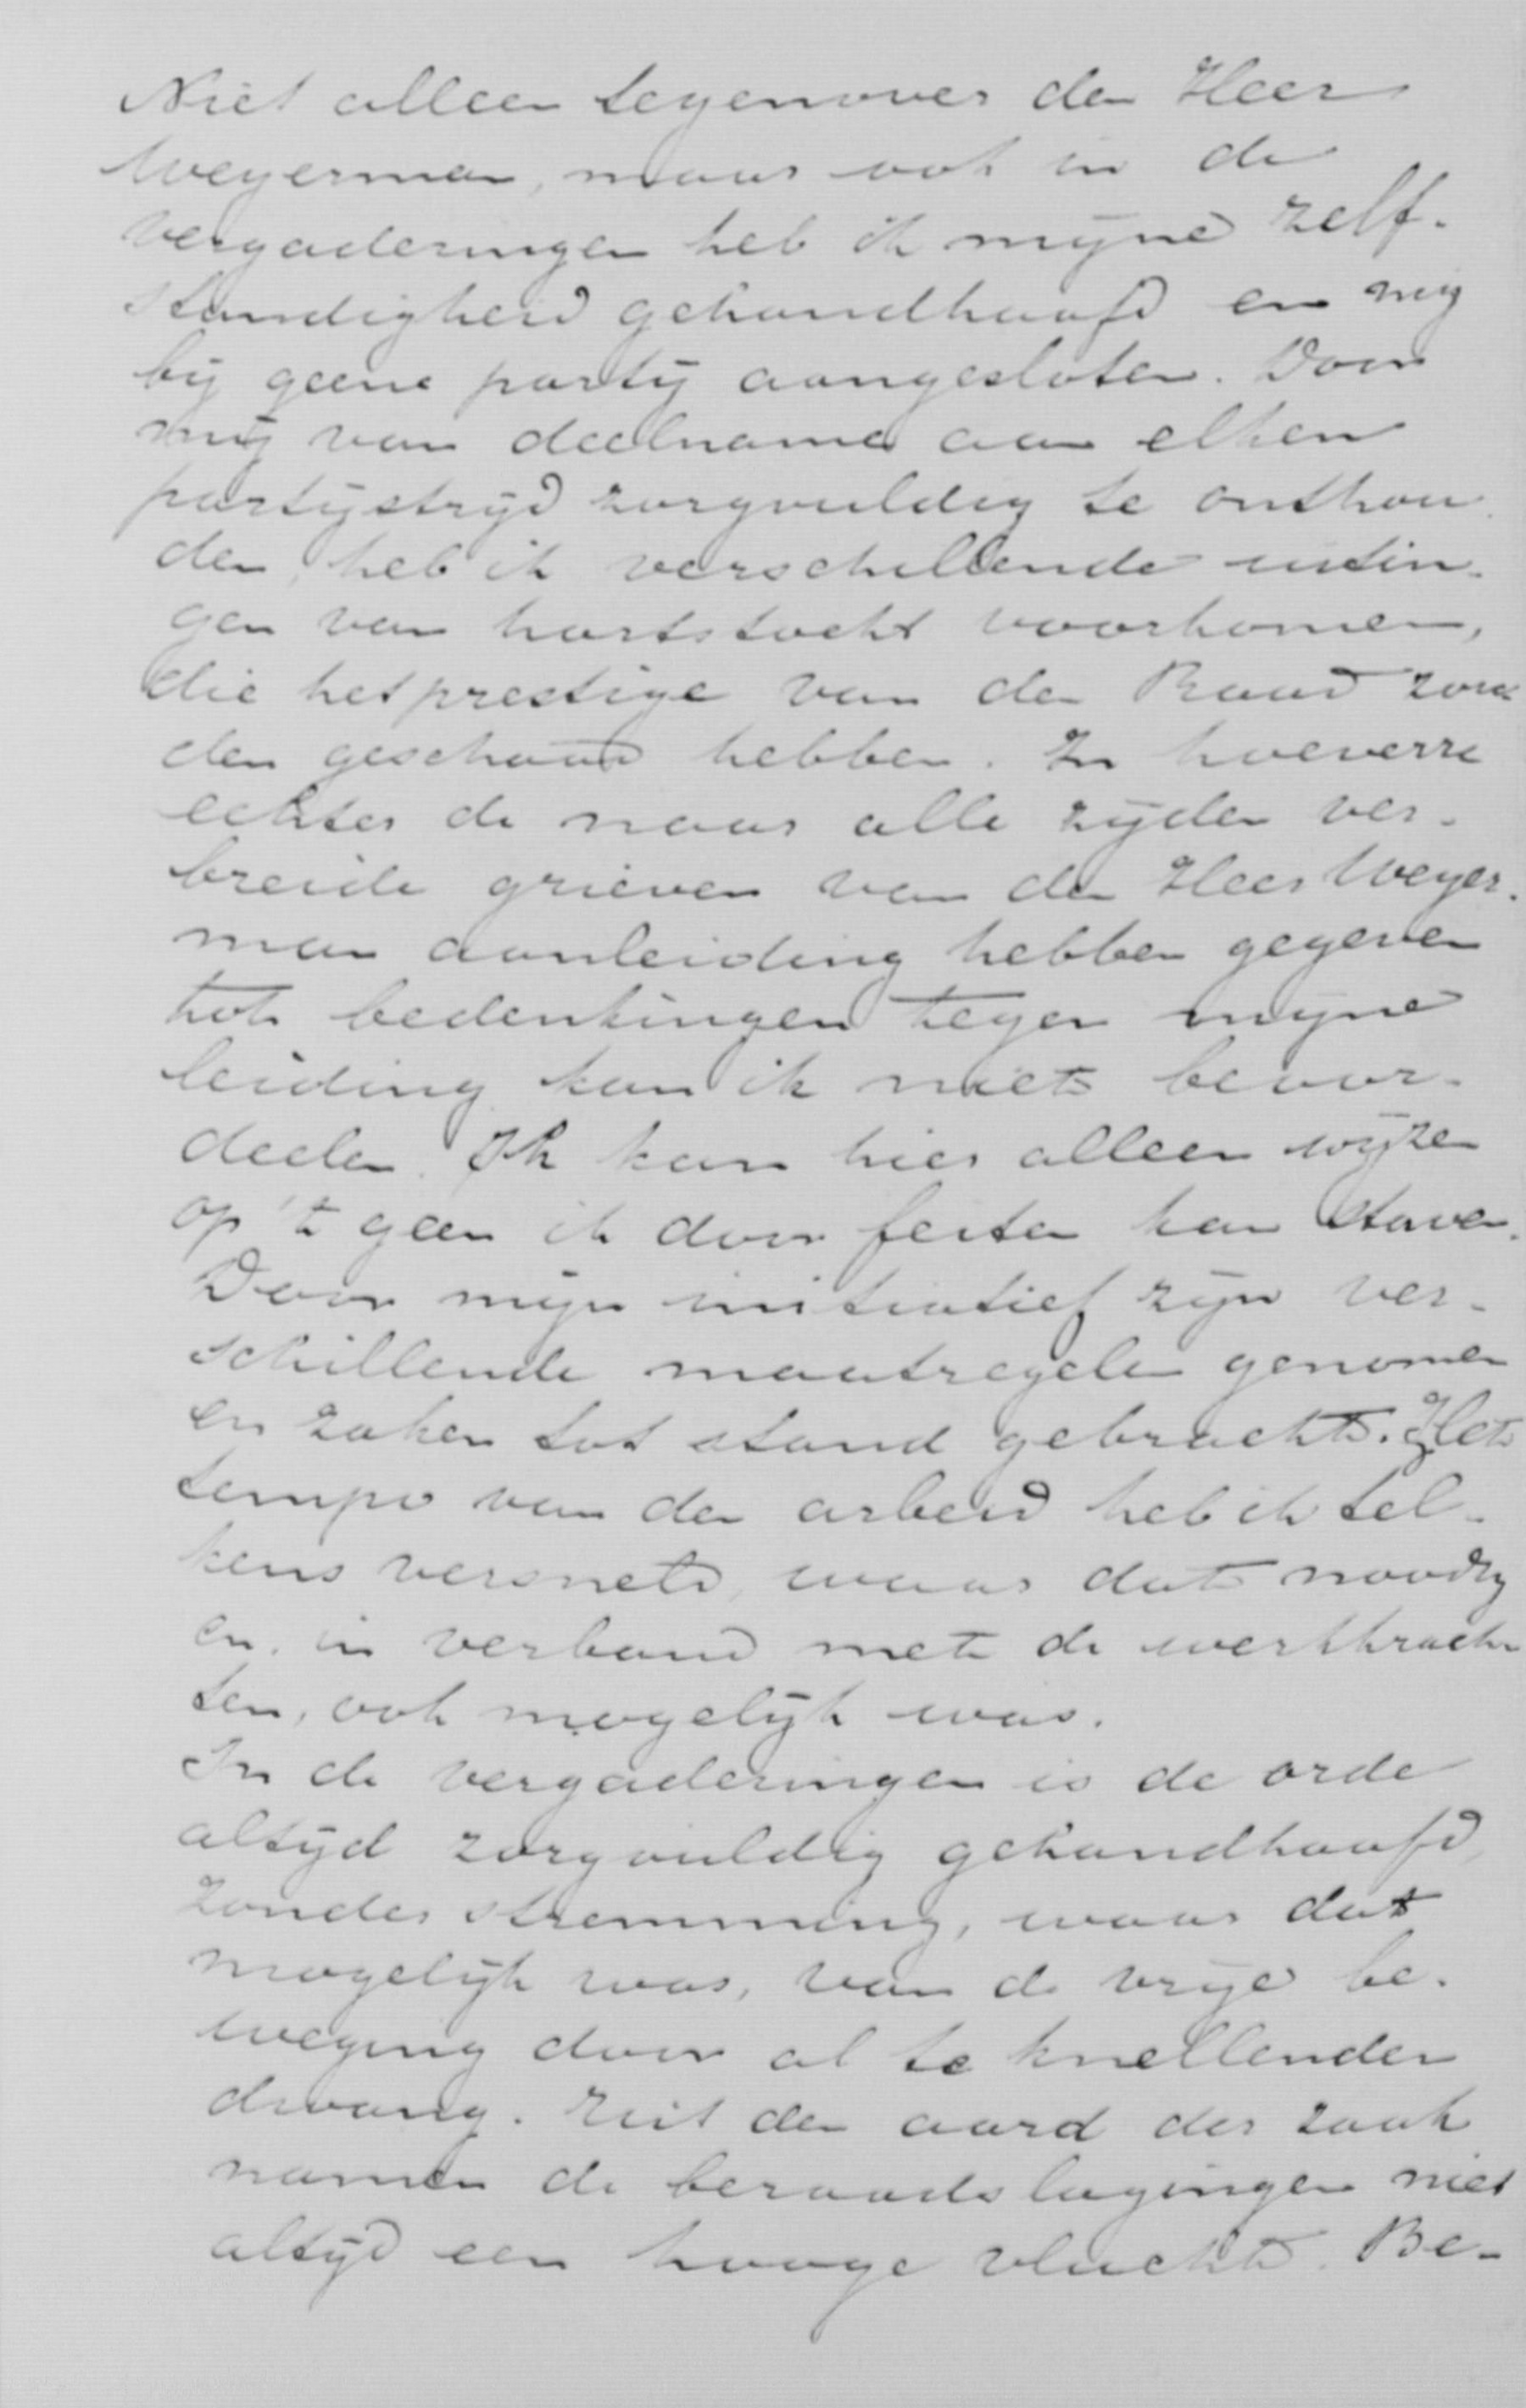 Niet alleen tegenover den Heer
Weyerman, maar ook in de
vergaderingen heb ik mijne zelf-
standigheid gehandhaafd en mij
bij geene partij aangesloten. Door
mij van deelname aan elken
partijstrijd zorgvuldig te onthou-
den, heb ik verschillende uitin-
gen van hartstocht voorkomen,
die het prestige van den Raad zou
den geschaad hebben. In hoeverre
echter de naar alle zijden ver-
breide grieven van den Heer Weyer-
man aanleiding hebben gegeven
tot bedenkingen tegen mijne
leiding kan ik niet beoor-
deelen. Ik kan hier alleen wijzen
op 't geen ik door feiten kan staven.
Door mijn initiatief zijn ver-
schillende maatregelen genomen
en zaken tot stand gebracht. Het
tempo van den arbeid heb ik tel-
kens versneld, waar dat noodig
en, in verband met de werkkrach
ten, ook mogelijk was.
In de vergaderingen is de orde
altijd zorgvuldig gehandhaafd,
zonder stremming, waar dat
mogelijk was, van de vrije be-
weging door al te knellenden
dwang. Uit den aard der zaak
namen de beraadslagingen niet
altijd een hooge vlucht. Be-